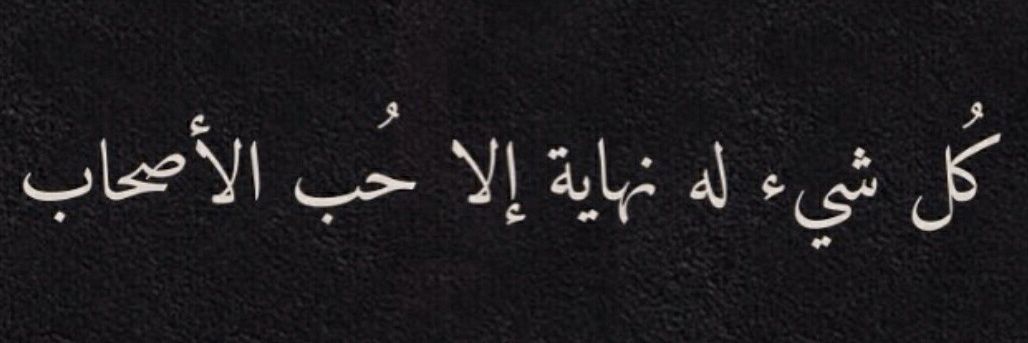 كُل شيء له نهاية إلا حُب الأصحاب